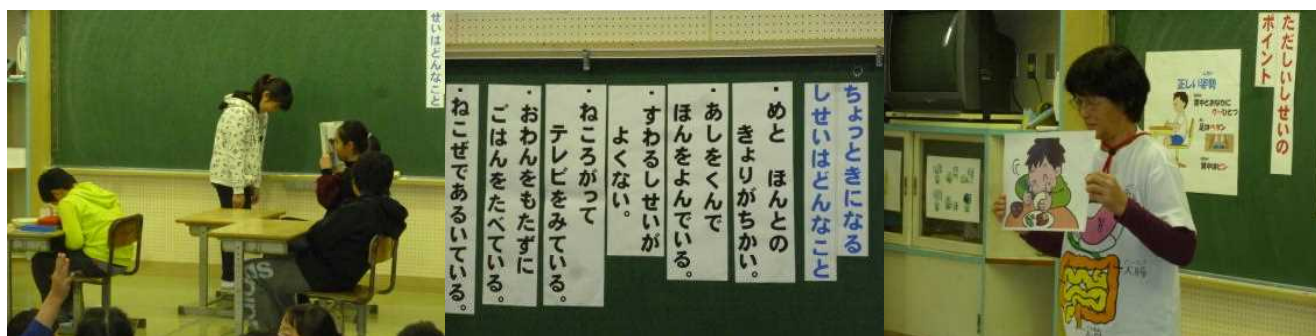 せいはどんなこと
ちょっときになる
しせいはどんなこと
・めと ほんとの
きょりがちかい。
・あしをくんで
ほんをよんでいる。
・すわるしせいが
よくない。
・ねころがって
テレビをみている。
・おわんをもたずに
ごはんをたべている。
・ねこぜであるいている。
ただしいしせいの
ポイント
正しい姿勢
背中とおなかに
グーひとつ
足はペタン
背中はピン
大腸